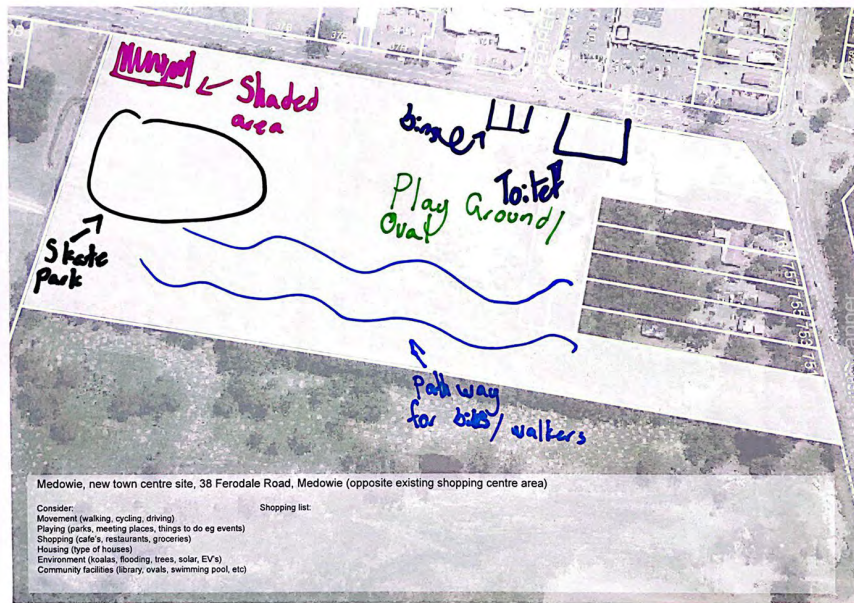 Shaded
area
bins
Toilet
Play Ground/
Oval
Skate
park
Pathway
for bikes/walkers
Medowie, new town centre site, 38 Ferodale Road, Medowie (opposite existing shopping centre area)
Consider:
Shopping list:
Movement (walking, cycling, driving)
Playing (parks, meeting places, things to do eg events)
Shopping (cafe's, restaurants, groceries)
Housing (type of houses)
Environment (koalas, flooding, trees, solar, EV's)
Community facilities (library, ovals, swimming pool, etc)